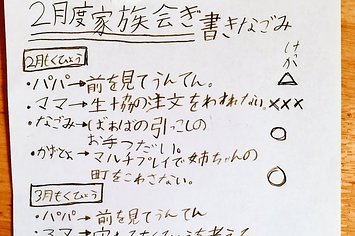 2月度家族会ぎ 書きなごみ
けっか
2月もくひょう
・パパ→前を見てうんてん。 △
・ママ→生協の注文をわすれない。×××
・なごみ→ばぁばの引っこしの
お手つだい。 ○
・かずとよ→マルチプレイで姉ちゃんの
町をこわさない。 ○
3月もくひょう
・パパ→前を見てうんてん